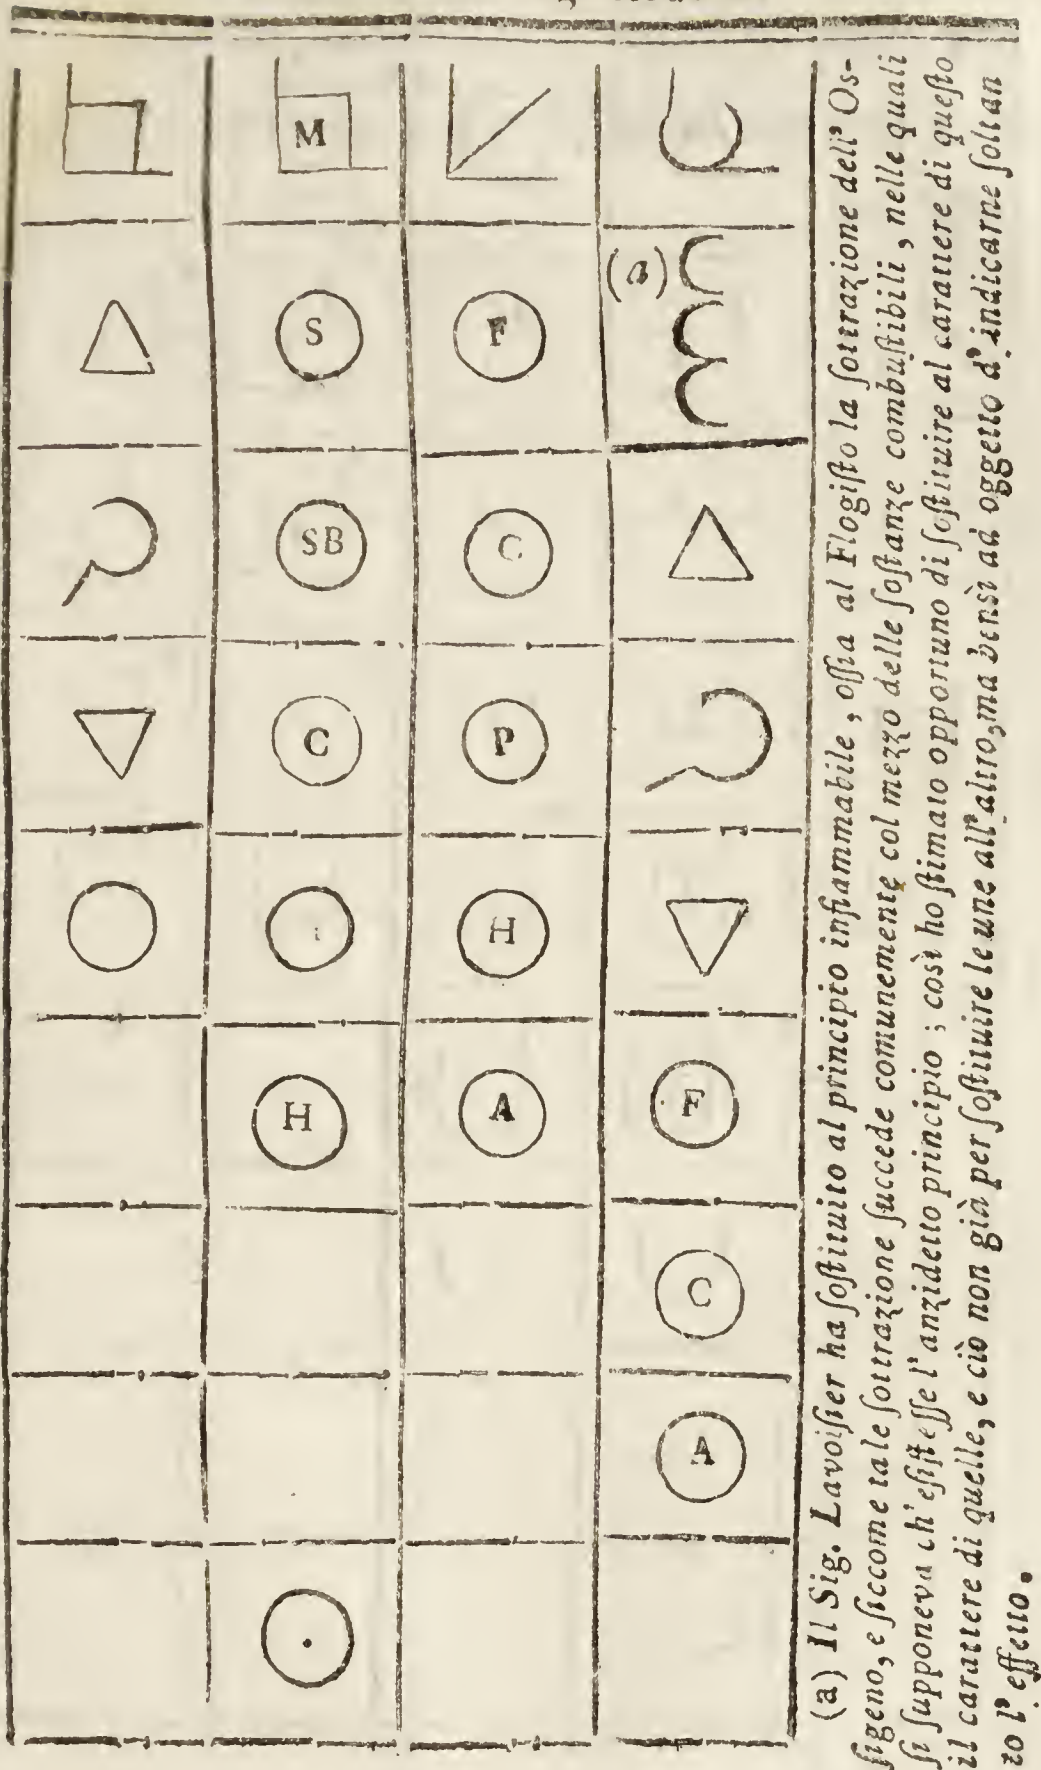 M
(a)
S
F
SB
C
C
P
H
H
A
F
C
A
(a) Il Sig. Lavoiſier ha ſoſtituito al principio infiammabile, oſſia al Flogiſto la ſottrazione dell' Os-
ſigeno, e ſiccome tale ſottrazione ſuccede comunemente col mezzo delle ſoſtanze combuſtibili, nelle quali
ſi ſupponeva ch' eſiſteſſe l'anzidetto principio; così ho ſtimato opportuno di ſoſtituire al carattere di queſto
il carattere di quelle, e ciò non già per ſoſtituire le une all'altro, ma bensì ad oggetto d'indicarne ſoltan
to l'effetto.